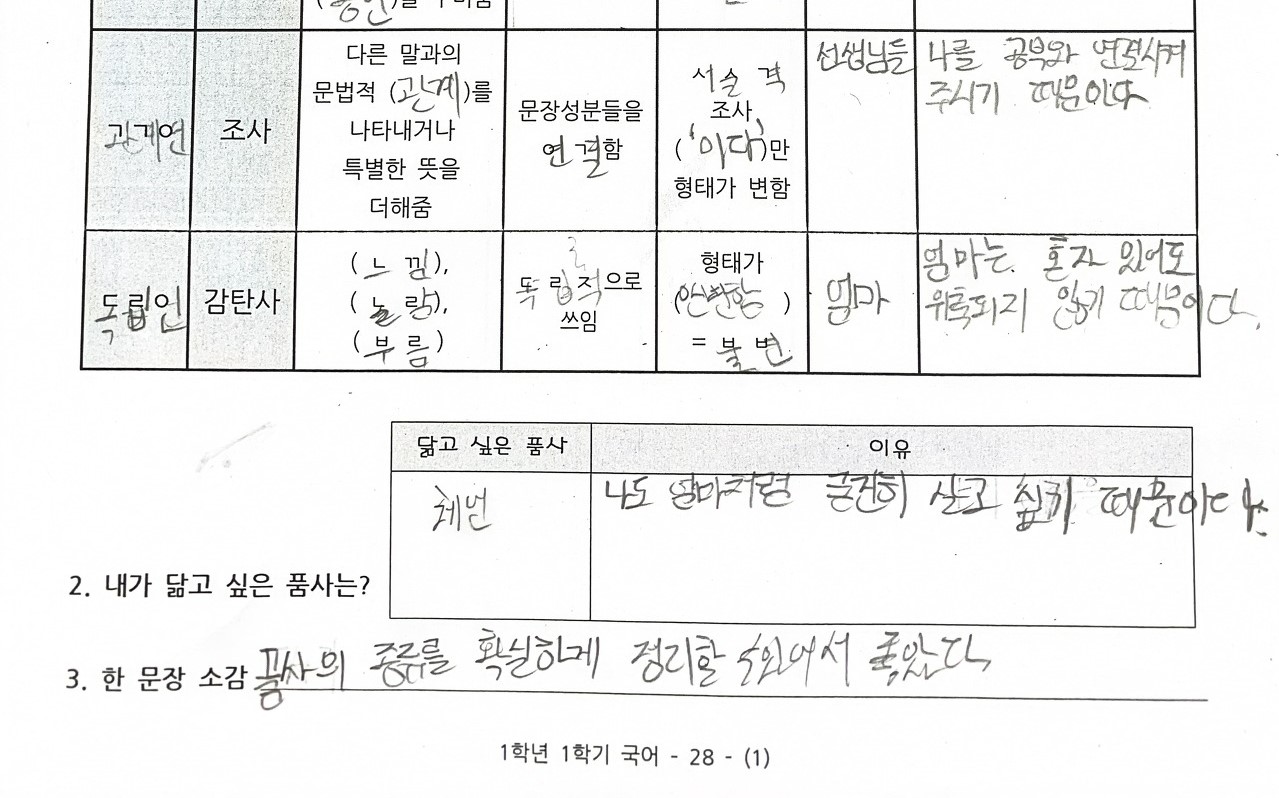 (용언)를
관계언
조사
다른 말과의
문법적 (관계)를
나타내거나
특별한 뜻을
더해줌
문장성분들을
연결함
서술격
조사
('이다')만
형태가 변함
선생님들
나를 공부와 연결시켜
주시기 때문이다
독립언
감탄사
(느낌),
(놀람),
(부름)
독립적으로
쓰임
형태가
(안변함)
= 불변
엄마
엄마는 혼자 있어도
위축되지 않기 때문이다.
닮고 싶은 품사
이유
체언
나도 엄마처럼 굳건히 살고 싶기 때문이다.
2. 내가 닮고 싶은 품사는?
3. 한 문장 소감 품사의 종류를 확실하게 정리할 수 있어서 좋았다
1학년 1학기 국어 - 28 - (1)